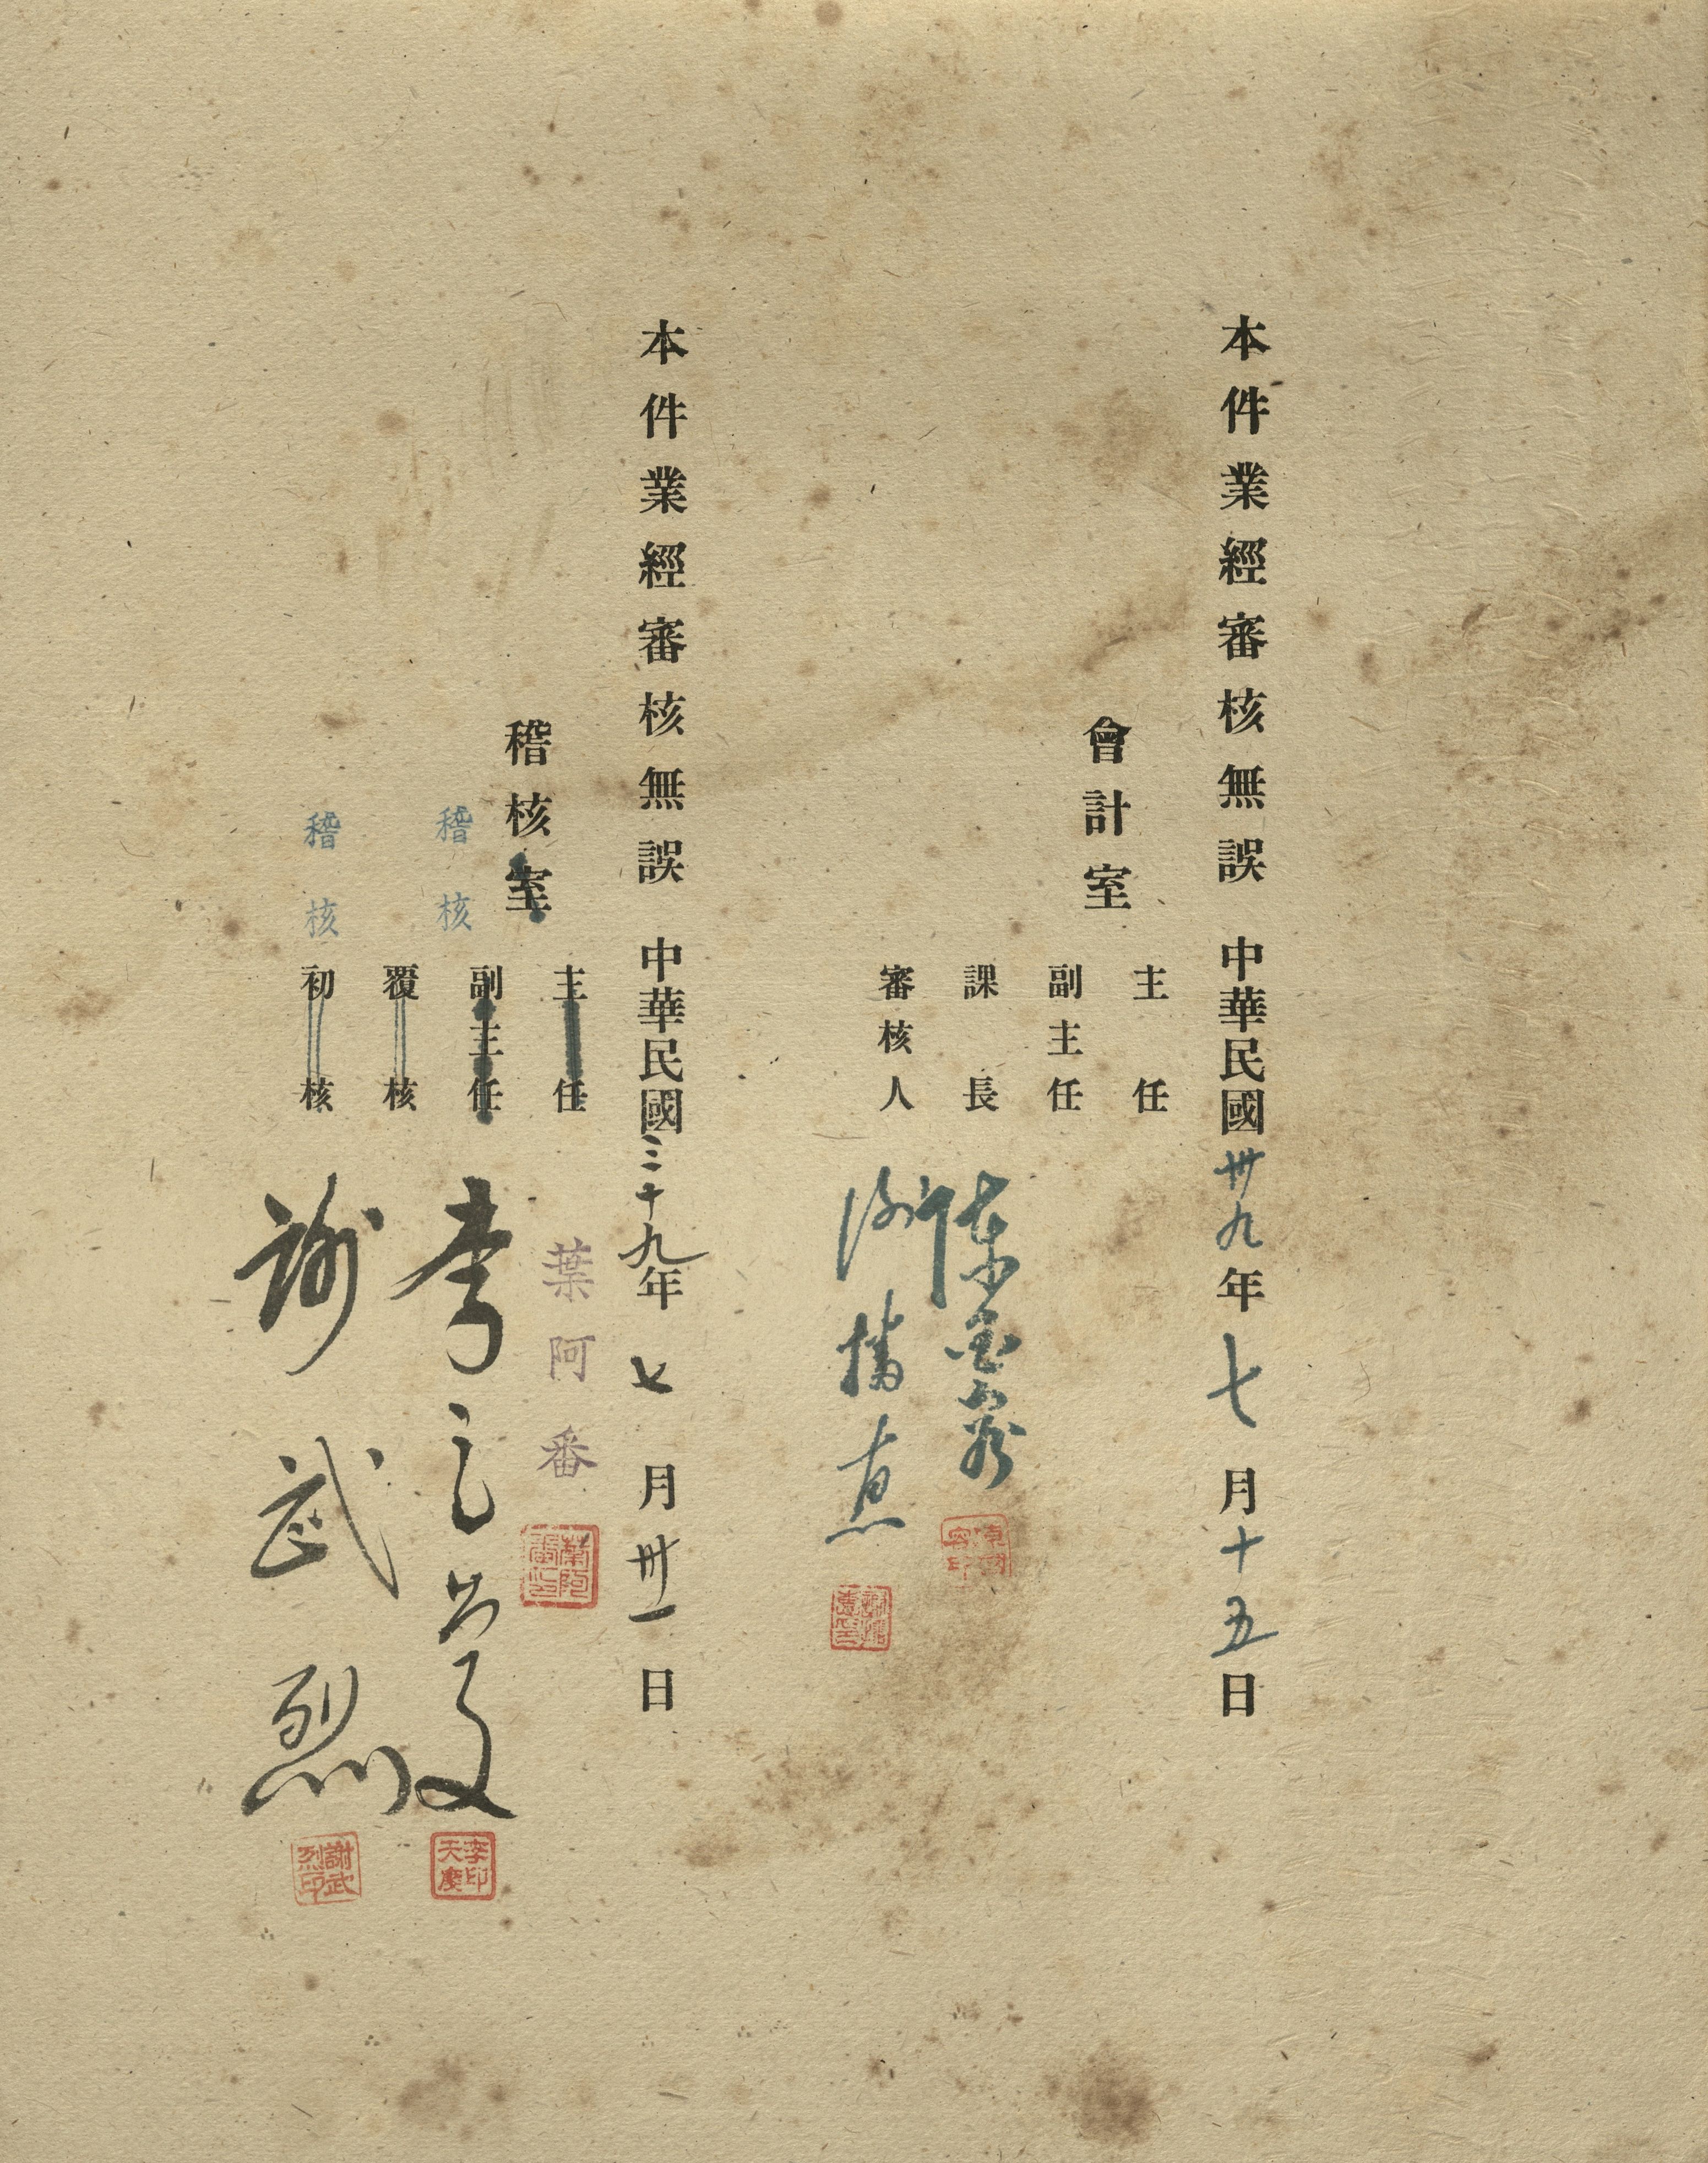 本件業經審核無誤 中華民國卅九年七月十五日
會計室
主任
副主任
課長
審核人
本件業經審核無誤 中華民國三十九年七月卅一日
稽核室
主任
葉阿番
副主任
稽核
覆核
李天慶
李印天慶
稽核
初核
謝武烈
謝武烈印